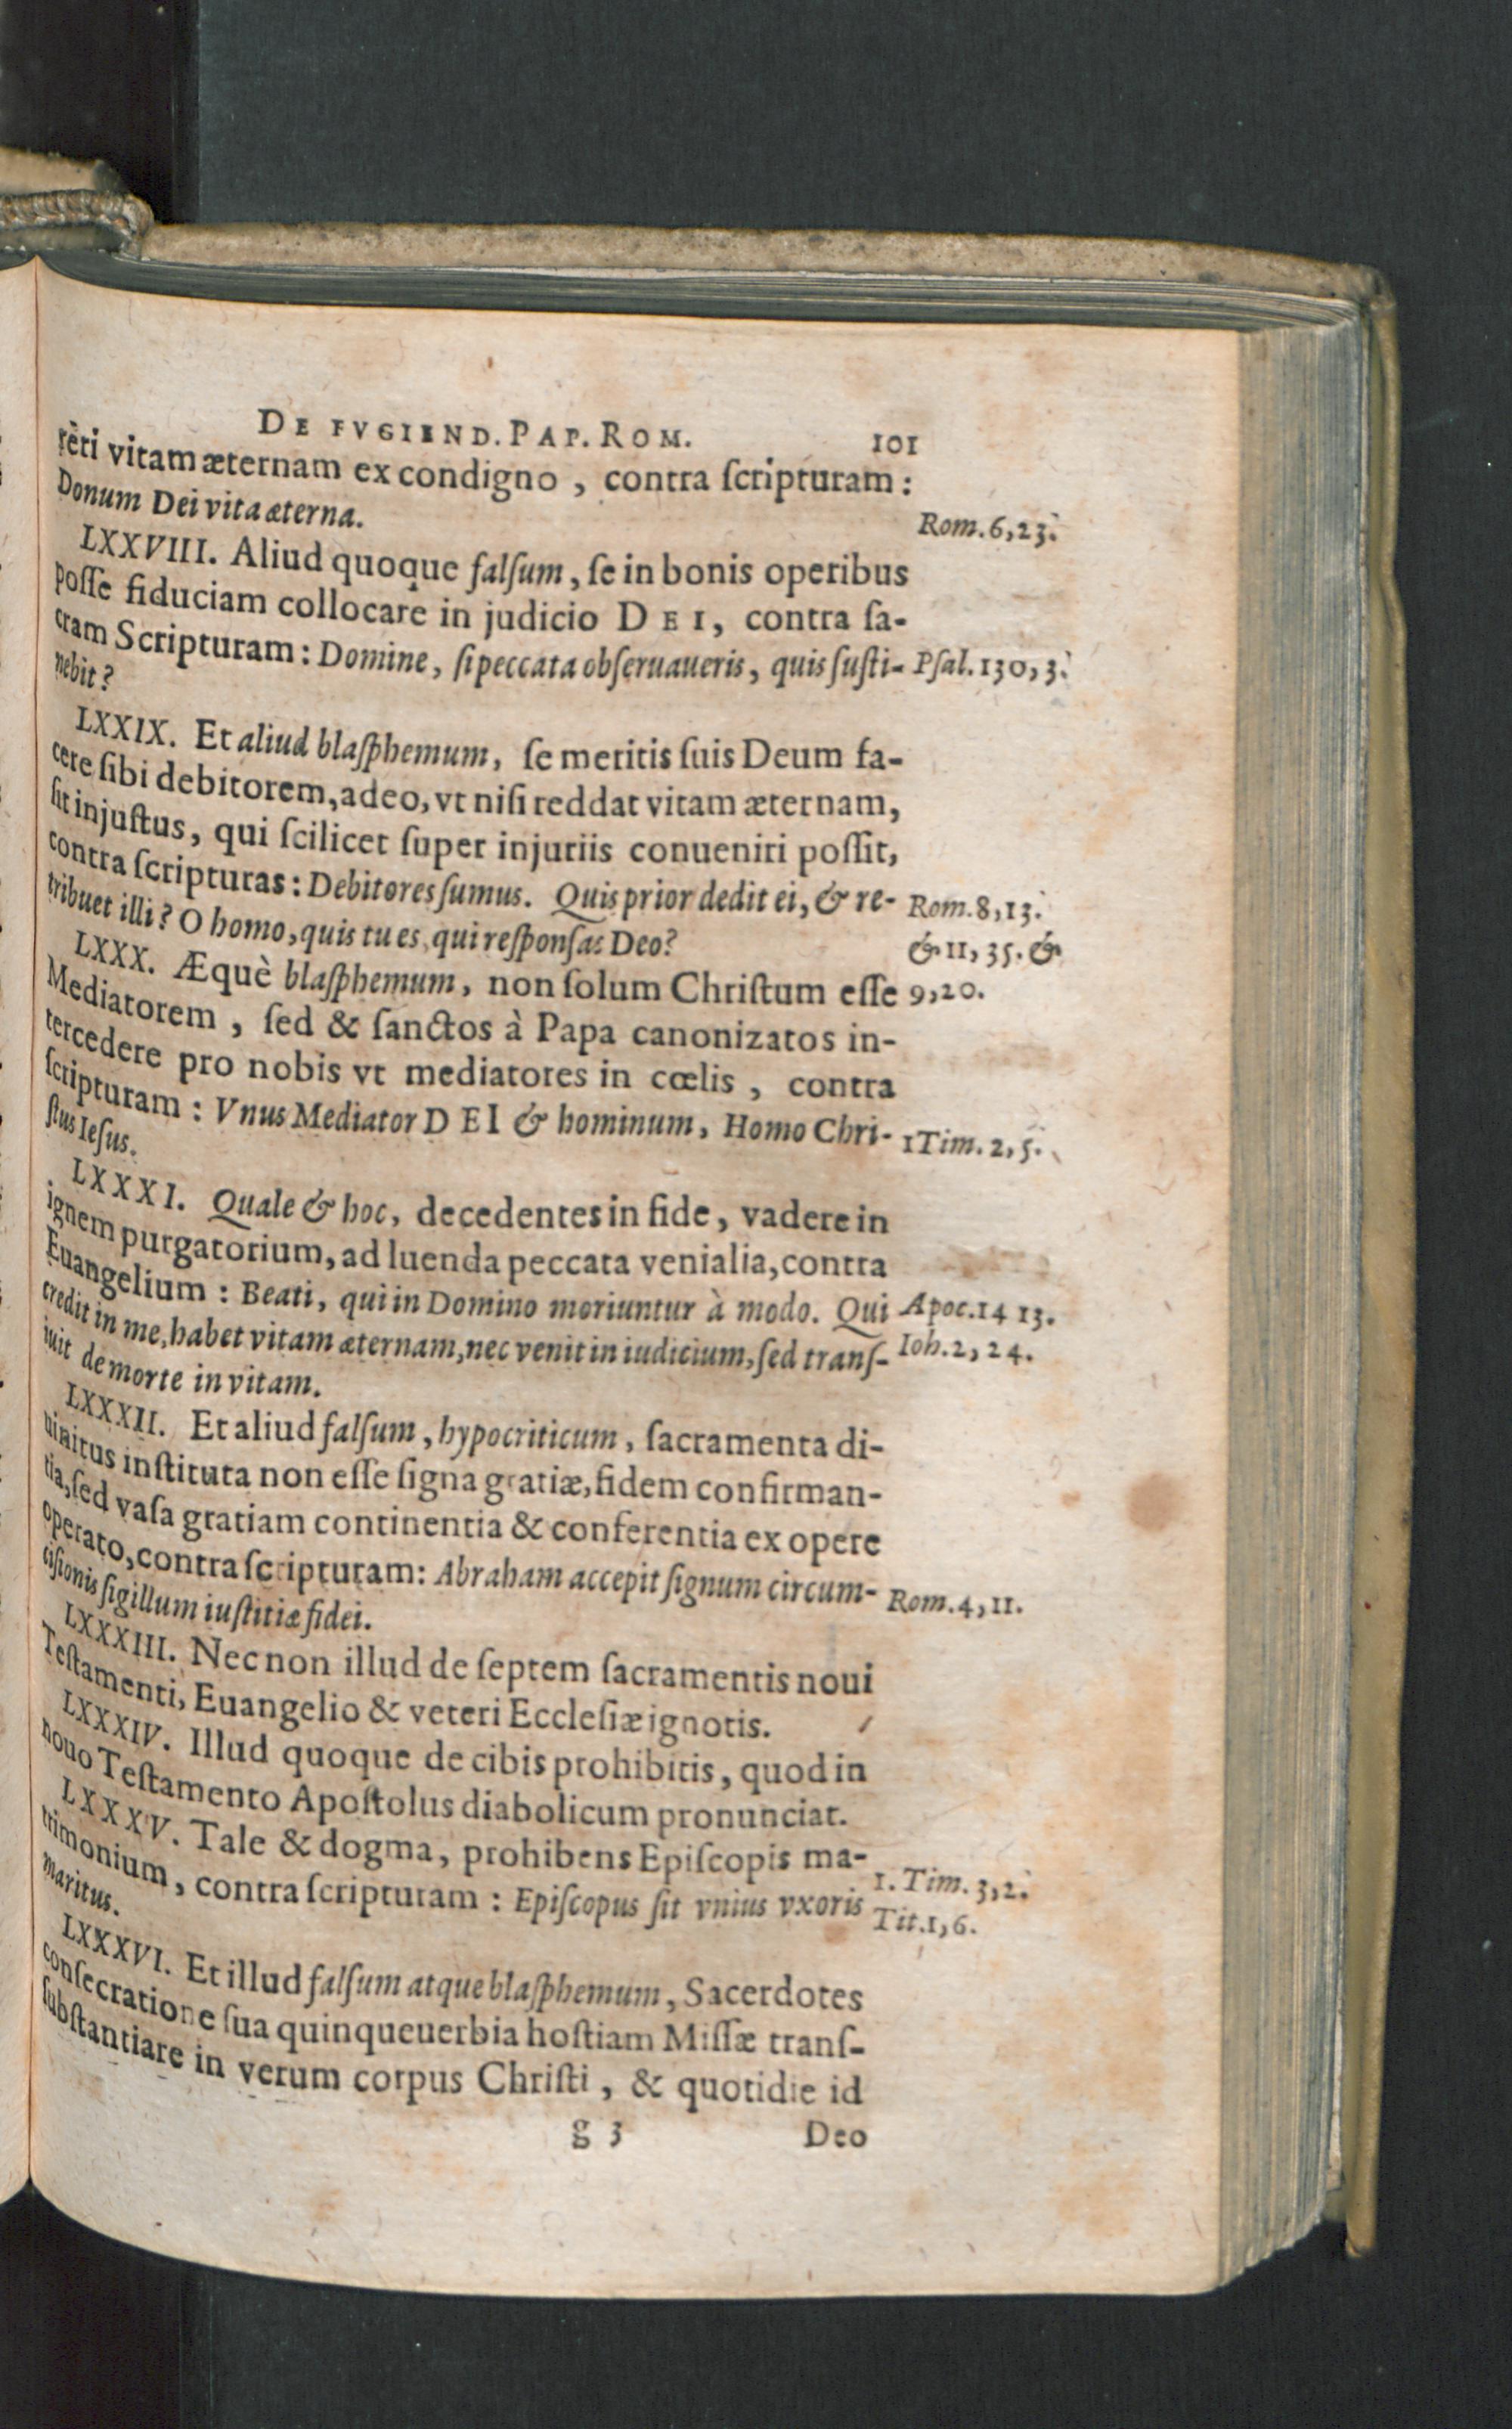 DE FVGIEND. PAP. ROM. 101
rēri vitam æternam ex condigno, contra ſcripturam:
Donum Dei vita æterna. Rom. 6, 23.
LXXVIII. Aliud quoque falſum, ſe in bonis operibus
poſſe fiduciam collocare in judicio DEI, contra ſa-
cram Scripturam: Domine, ſi peccata obſeruaueris, quis ſuſti- Pſal. 130, 3.
nebit?
LXXIX. Et aliud blaſphemum, ſe meritis ſuis Deum fa-
cere ſibi debitorem, adeo, vt niſi reddat vitam æternam,
ſit injuſtus, qui ſcilicet ſuper injuriis conueniri poſſit,
contra ſcripturas: Debitores ſumus. Quis prior dedit ei, & re- Rom. 8, 13.
tribuet illi? O homo, quis tu es, qui reſponſas Deo? & 11, 35. &
LXXX. Æquè blaſphemum, non ſolum Chriſtum eſſe 9, 20.
Mediatorem, ſed & ſanctos à Papa canonizatos in-
tercedere pro nobis vt mediatores in cœlis, contra
ſcripturam: Vnus Mediator DEI & hominum, Homo Chri- 1 Tim. 2, 5.
ſtus Ieſus.
LXXXI. Quale & hoc, decedentes in fide, vadere in
ignem purgatorium, ad luenda peccata venialia, contra
Euangelium: Beati, qui in Domino moriuntur à modo. Qui Apoc. 14 13.
credit in me, habet vitam æternam, nec venit in iudicium, ſed tranſ- Ioh. 2, 24.
iuit de morte in vitam.
LXXXII. Et aliud falſum, hypocriticum, ſacramenta di-
uinitus inſtituta non eſſe ſigna gratiæ, fidem confirman-
tia, ſed vaſa gratiam continentia & conferentia ex opere
operato, contra ſcripturam: Abraham accepit ſignum circum- Rom. 4, 11.
ciſionis ſigillum iuſtitiæ fidei.
LXXXIII. Nec non illud de ſeptem ſacramentis noui
Teſtamenti, Euangelio & veteri Eccleſiæ ignotis.
LXXXIV. Illud quoque de cibis prohibitis, quod in
nouo Teſtamento Apoſtolus diabolicum pronunciat.
LXXXV. Tale & dogma, prohibens Epiſcopis ma-
trimonium, contra ſcripturam: Epiſcopus ſit vnius vxoris 1. Tim. 3, 2.
maritus. Tit. 1, 6.
LXXXVI. Et illud falſum atque blaſphemum, Sacerdotes
conſecratione ſua quinqueuerbia hoſtiam Miſſæ tranſ-
ſubſtantiare in verum corpus Chriſti, & quotidie id
g 3 Deo